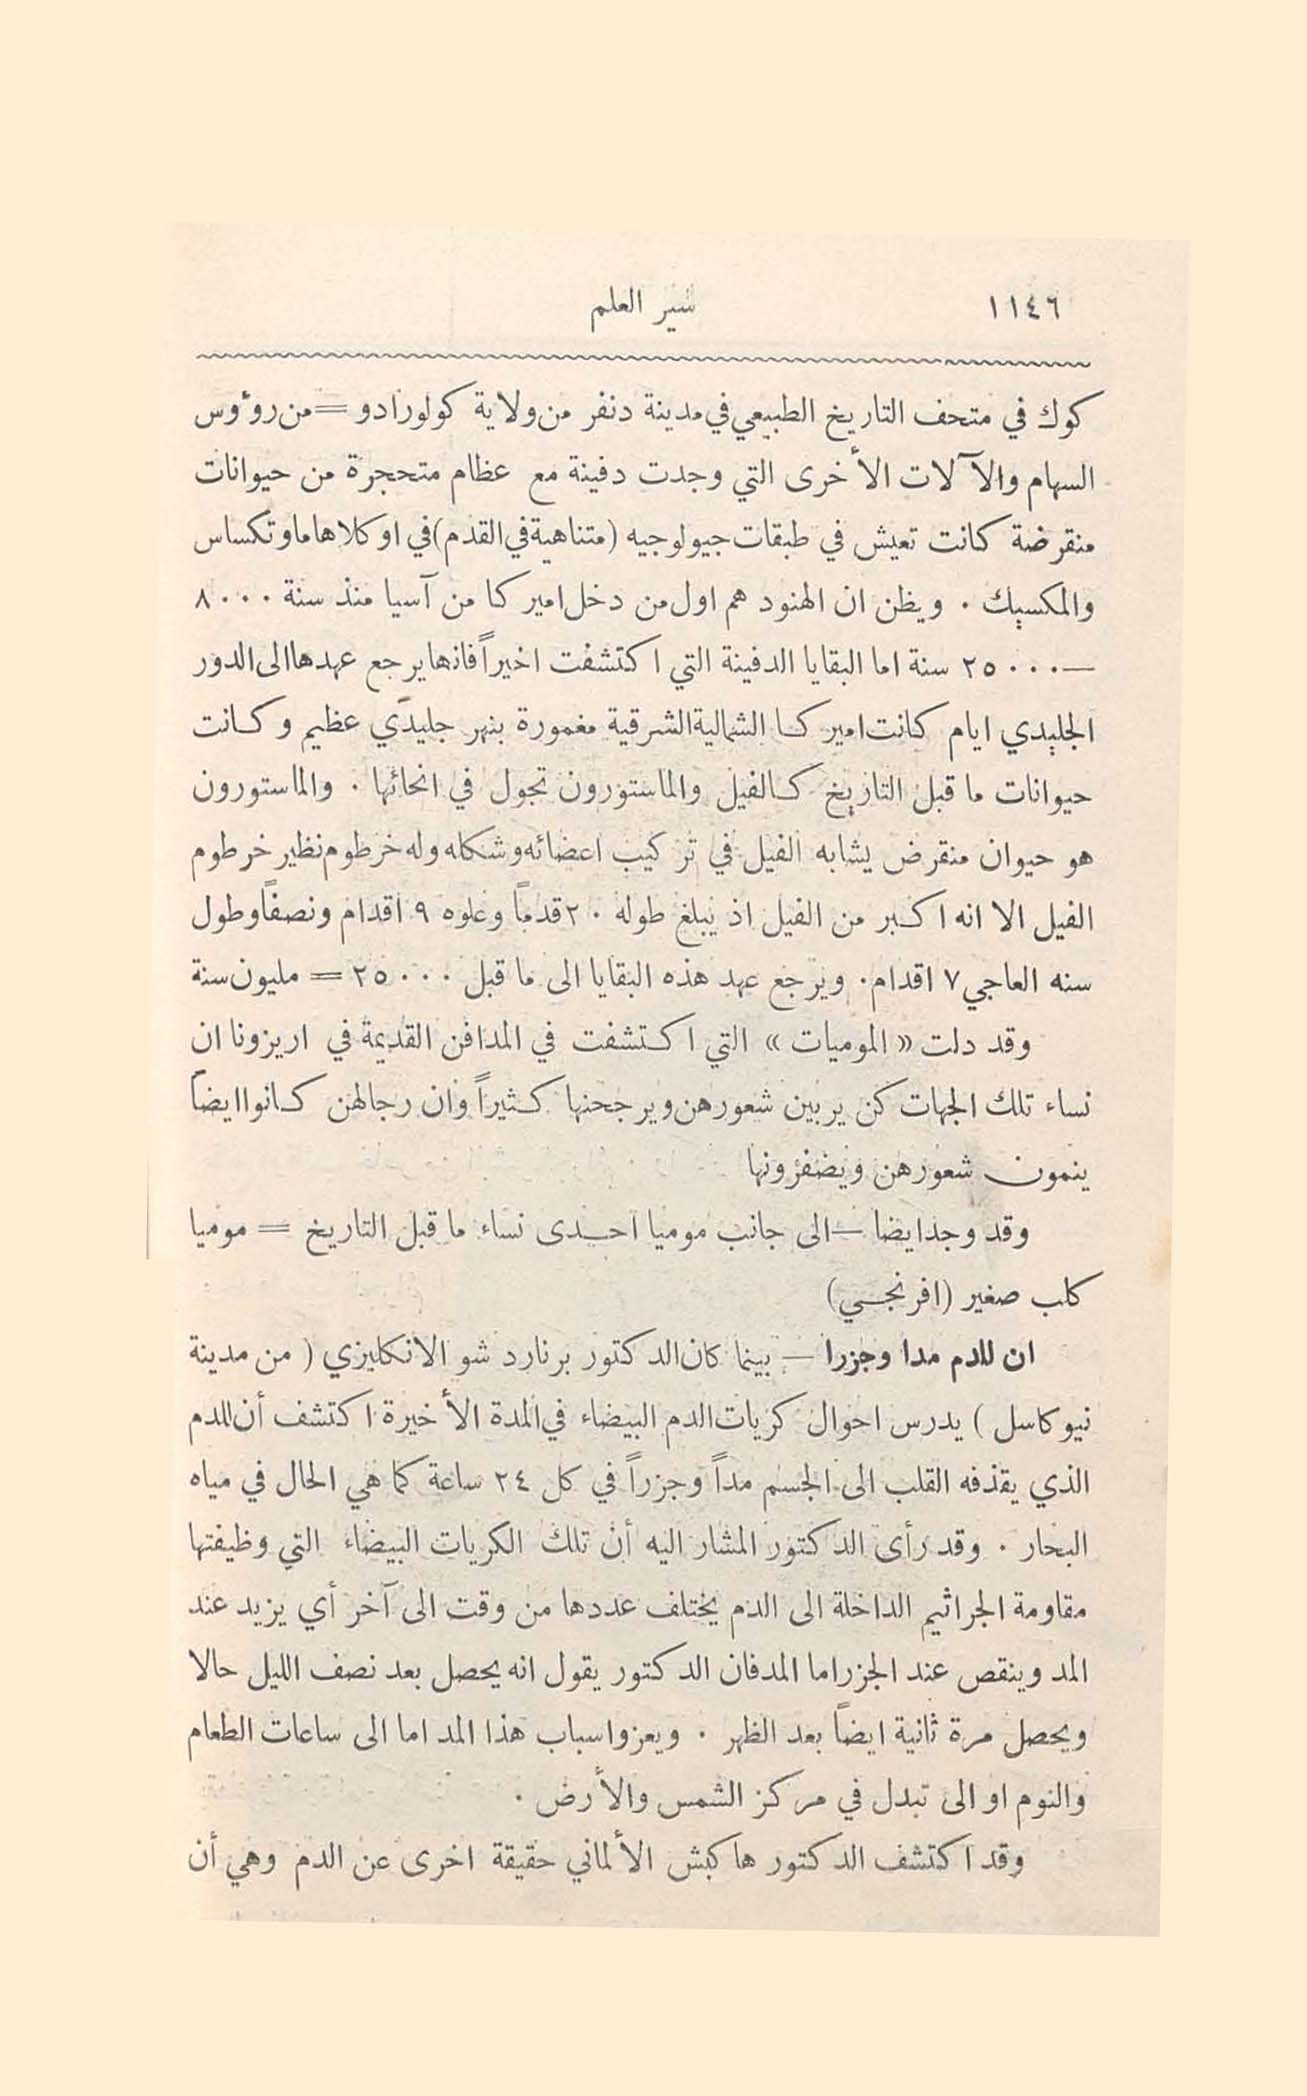 ١١٤٦
سير العلم
كوك في متحف التاريخ الطبيعي في مدينة دنفر من ولاية كولورادو = من روؤوس
السهام والآلات الأخرى التي وجدت دفينة مع عظام متحجرة من حيوانات
منقرضة كانت تعيش في طبقات جيولوجيه (متناهية في القدم) في اوكلاهاما وتكساس
والمكسيك . ويظن ان الهنود هم اول من دخل اميركا من آسيا منذ سنة ٨٠٠٠
— ٢٥٠٠٠ سنة اما البقايا الدفينة التي اكتشفت اخيراً فانها يرجع عهدها الى الدور
الجليدي ايام كانت اميركا الشمالية الشرقية مغمورة بنهر جليدي عظيم وكانت
حيوانات ما قبل التاريخ كالفيل والماستورون تجول في انحائها . والماستورون
هو حيوان منقرض يشابه الفيل في تركيب اعضائه وشكله وله خرطوم نظير خرطوم
الفيل الا انه اكبر من الفيل اذ يبلغ طوله ٢٠ قدماً وعلوه ٩ اقدام ونصفاً وطول
سنه العاجي ٧ اقدام . ويرجع عهد هذه البقايا الى ما قبل ٢٥٠٠٠ = مليون سنة
وقد دلت « الموميات » التي اكتشفت في المدافن القديمة في اريزونا ان
نساء تلك الجهات كن يربين شعورهن ويرجحنها كثيراً وان رجالهن كانوا ايضاً
ينمون شعورهن ويضفرونها
وقد وجد ايضا — الى جانب موميا احدى نساء ما قبل التاريخ = موميا
كلب صغير (افرنجي)
ان للدم مدا وجزرا — بينما كان الدكتور برنارد شو الانكليزي ( من مدينة
نيوكاسل ) يدرس احوال كريات الدم البيضاء في المدة الأخيرة اكتشف أن للدم
الذي يقذفه القلب الى الجسم مداً وجزراً في كل ٢٤ ساعة كما هي الحال في مياه
البحار . وقد رأى الدكتور المشار اليه أن تلك الكريات البيضاء التي وظيفتها
مقاومة الجراثيم الداخلة الى الدم يختلف عددها من وقت الى آخر أي يزيد عند
المد وينقص عند الجزر اما المد فان الدكتور يقول انه يحصل بعد نصف الليل حالا
ويحصل مرة ثانية ايضاً بعد الظهر . ويعزو اسباب هذا المد اما الى ساعات الطعام
والنوم او الى تبدل في مركز الشمس والأرض .
وقد اكتشف الدكتور هاكبش الألماني حقيقة اخرى عن الدم وهي أن